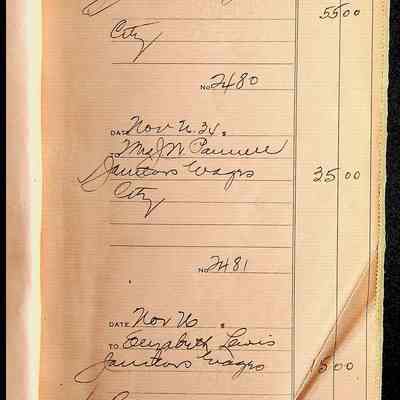 5500
City
No 2480
DATE Nov
Mrs J W Pannell
Janitors Wages 35 00
City
No 2481
DATE Nov
TO Elizabeth Lewis
Janitors Wages 1500